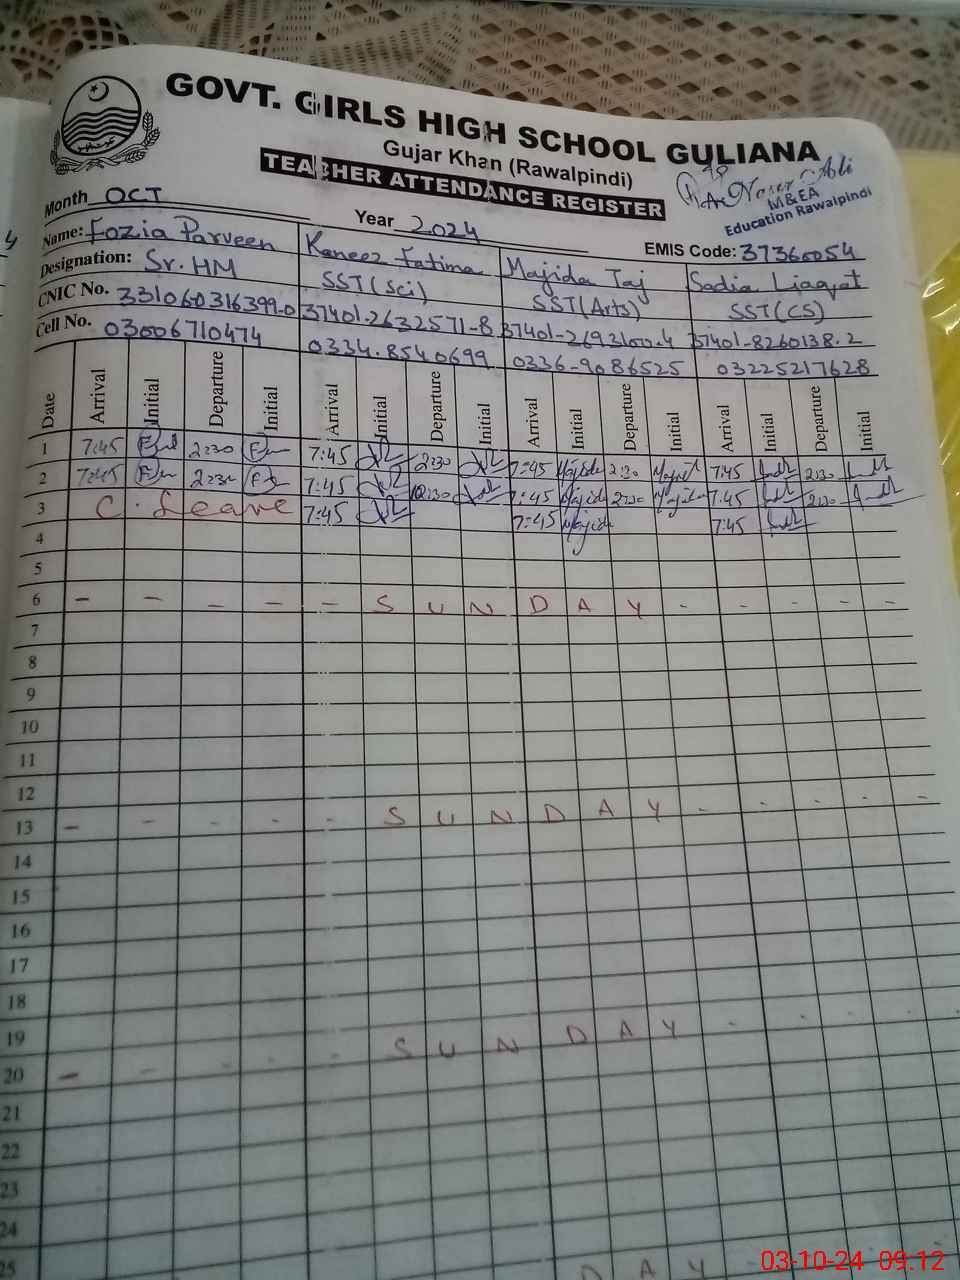 GOVT. GIRLS HIGH SCHOOL GULIANA
Gujar Khan (Rawalpindi)
TEACHER ATTENDANCE REGISTER
M&EA
Education Rawalpindi
Month OCT Year 2024 EMIS Code: 37360054
Name: Fozia Parveen Kaneez Fatima Majida Taj Sadia Liaqat
Designation: Sr. HM SST(Sci) SST(Arts) SST(CS)
CNIC No. 33106-0316399-0 37401-2632571-8 37401-2693100-4 37401-8260138-2
Cell No. 03006710474 0334-8540699 0336-9086525 03225217628
Date Arrival Initial Departure Initial Arrival Initial Departure Initial Arrival Initial Departure Initial Arrival Initial Departure Initial
1 7:45 2:30 7:45 2:30 7:45 Majida 2:30 7:45 2:30
2 7:45 2:30 7:45 2:30 7:45 Majida 2:30 Majida 7:45 2:30
3 C. Leave 7:45 7:45 Majida 7:45
4
5
6 - - - - - S U N D A Y - - - - -
7
8
9
10
11
12
13 - - - - - S U N D A Y - - - - -
14
15
16
17
18
19
20 - - - - - S U N D A Y - - - - -
21
22
23
24
25 D A Y
03-10-24 09:12